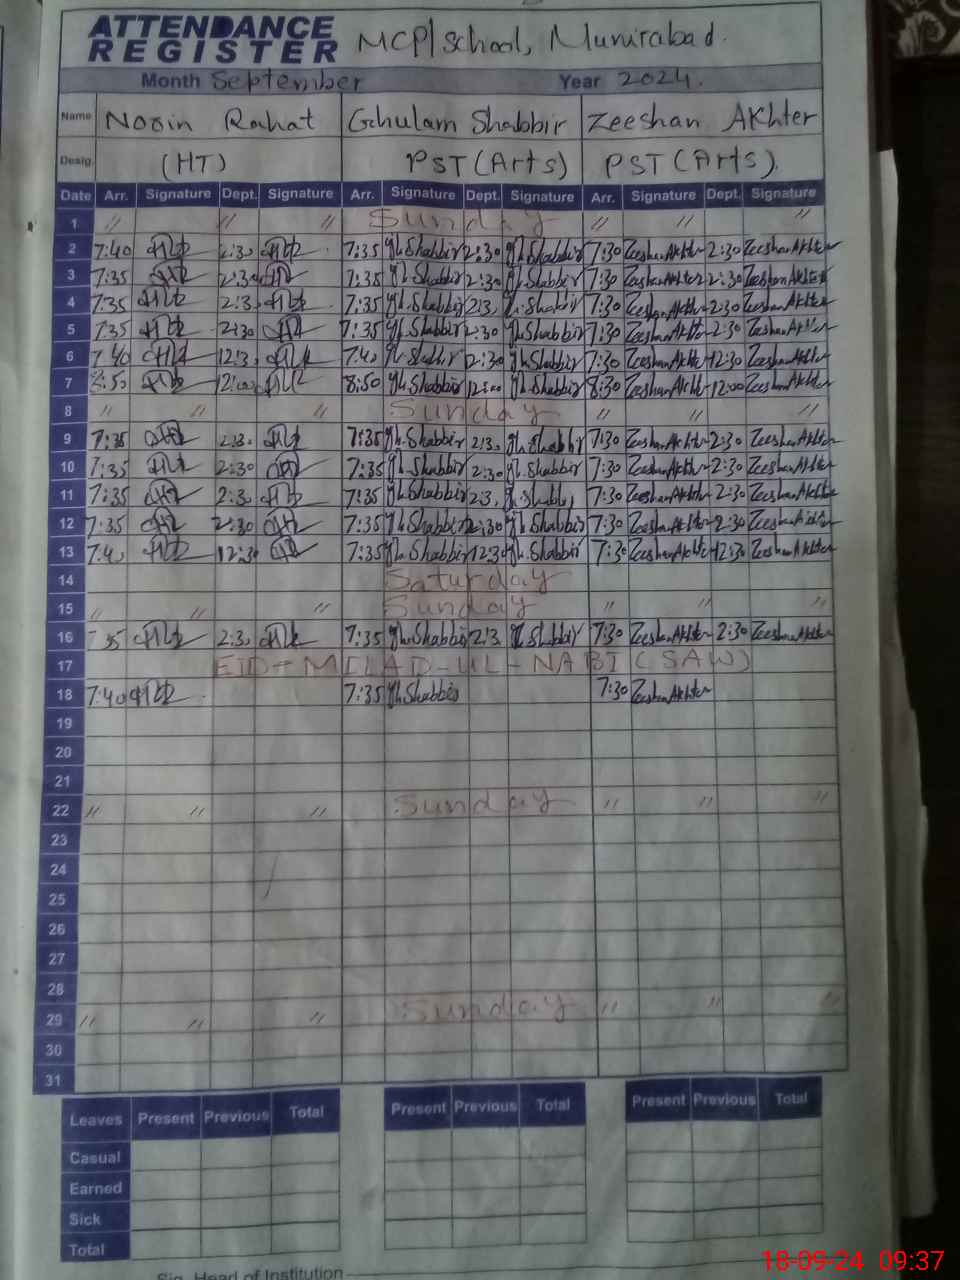 ATTENDANCE REGISTER MCP/School, Munirabad.
Month September Year 2024.
Name Nosin Rahat Ghulam Shabbir Zeeshan Akhter
Desig. (HT) PST (Arts) PST (Arts).
Date Arr. Signature Dept. Signature Arr. Signature Dept. Signature Arr. Signature Dept. Signature
1 // // // Sunday // // //
2 7:40 2:30 7:35 Gh.Shabbir 2:30 Gh.Shabbir 7:30 Zeeshan Akhter 2:30 Zeeshan Akhter
3 7:35 2:30 7:35 Gh.Shabbir 2:30 Gh.Shabbir 7:30 Zeeshan Akhter 2:30 Zeeshan Akhter
4 7:35 2:3. 7:35 Gh.Shabbir 2:3. Gh.Shabbir 7:30 Zeeshan Akhter 2:30 Zeeshan Akhter
5 7:35 2:30 7:35 Gh.Shabbir 2:30 Gh.Shabbir 7:30 Zeeshan Akhter 2:30 Zeeshan Akhter
6 7:40 12:3. 7:4. Gh.Shabbir 12:30 Gh.Shabbir 7:30 Zeeshan Akhter 12:30 Zeeshan Akhter
7 8:50 12:00 8:50 Gh.Shabbir 12:00 Gh.Shabbir 8:30 Zeeshan Akhter 12:00 Zeeshan Akhter
8 // // // Sunday // // //
9 7:35 2:3. 7:35 Gh.Shabbir 2:3. Gh.Shabbir 7:30 Zeeshan Akhter 2:30 Zeeshan Akhter
10 7:35 2:30 7:35 Gh.Shabbir 2:30 Gh.Shabbir 7:30 Zeeshan Akhter 2:30 Zeeshan Akhter
11 7:35 2:3. 7:35 Gh.Shabbir 2:3. Gh.Shabbir 7:30 Zeeshan Akhter 2:30 Zeeshan Akhter
12 7:35 2:30 7:35 Gh.Shabbir 2:30 Gh.Shabbir 7:30 Zeeshan Akhter 2:30 Zeeshan Akhter
13 7:4. 12:30 7:35 Gh.Shabbir 12:30 Gh.Shabbir 7:30 Zeeshan Akhter 12:30 Zeeshan Akhter
14 Saturday
15 // // // Sunday // // //
16 7:35 2:3. 7:35 Gh.Shabbir 2:3. Gh.Shabbir 7:30 Zeeshan Akhter 2:30 Zeeshan Akhter
17 EID-MILAD-UL-NABI (SAW)
18 7:40 7:35 Gh.Shabbir 7:30 Zeeshan Akhter
19
20
21
22 // // // Sunday // // //
23
24
25
26
27
28
29 // // // Sunday // // //
30
31
Leaves Present Previous Total Present Previous Total Present Previous Total
Casual
Earned
Sick
Total
Sig. Head of Institution
18-09-24 09:37